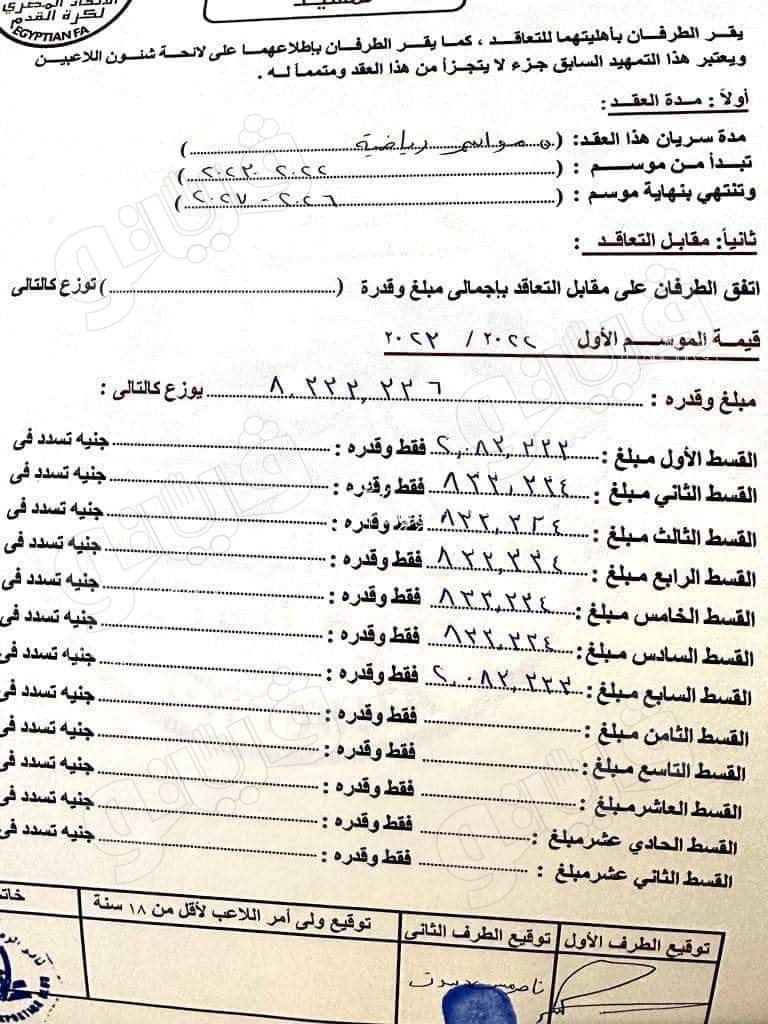 الاتحاد المصري
لكرة القدم
EGYPTIAN FA
يقر الطرفان بأهليتهما للتعاقد ، كما يقر الطرفان بإطلاعهما على لائحة شئون اللاعبين
ويعتبر هذا التمهيد السابق جزء لا يتجزأ من هذا العقد ومتمماً له .
أولاً : مدة العقد :
مدة سريان هذا العقد: (٥ مواسم رياضية)
تبدأ من موسم : (٢٠٢٢ ٢٠٢٣)
وتنتهي بنهاية موسم : (٢٠٢٦ - ٢٠٢٧)
ثانياً: مقابل التعاقد :
اتفق الطرفان على مقابل التعاقد بإجمالى مبلغ وقدرة ( ) توزع كالتالى
قيمة الموسم الأول ٢٠٢٢ / ٢٠٢٣
مبلغ وقدره : ٨,٣٣٣,٣٣٦ يوزع كالتالى :
القسط الأول مبلغ : ٢,٠٨٣,٣٣٣ فقط وقدره : جنيه تسدد فى
القسط الثاني مبلغ : ٨٣٣,٣٣٤ فقط وقدره : جنيه تسدد فى
القسط الثالث مبلغ : ٨٣٣,٣٣٤ فقط وقدره : جنيه تسدد فى
القسط الرابع مبلغ : ٨٣٣,٣٣٤ فقط وقدره : جنيه تسدد فى
القسط الخامس مبلغ : ٨٣٣,٣٣٤ فقط وقدره : جنيه تسدد فى
القسط السادس مبلغ : ٨٣٣,٣٣٤ فقط وقدره : جنيه تسدد فى
القسط السابع مبلغ : ٢,٠٨٣,٣٣٣ فقط وقدره : جنيه تسدد فى
القسط الثامن مبلغ : فقط وقدره : جنيه تسدد فى
القسط التاسع مبلغ : فقط وقدره : جنيه تسدد فى
القسط العاشر مبلغ : فقط وقدره : جنيه تسدد فى
القسط الحادي عشر مبلغ : فقط وقدره : جنيه تسدد فى
القسط الثاني عشر مبلغ : فقط وقدره : جنيه تسدد فى
توقيع الطرف الأول توقيع الطرف الثانى توقيع ولى أمر اللاعب لأقل من ١٨ سنة